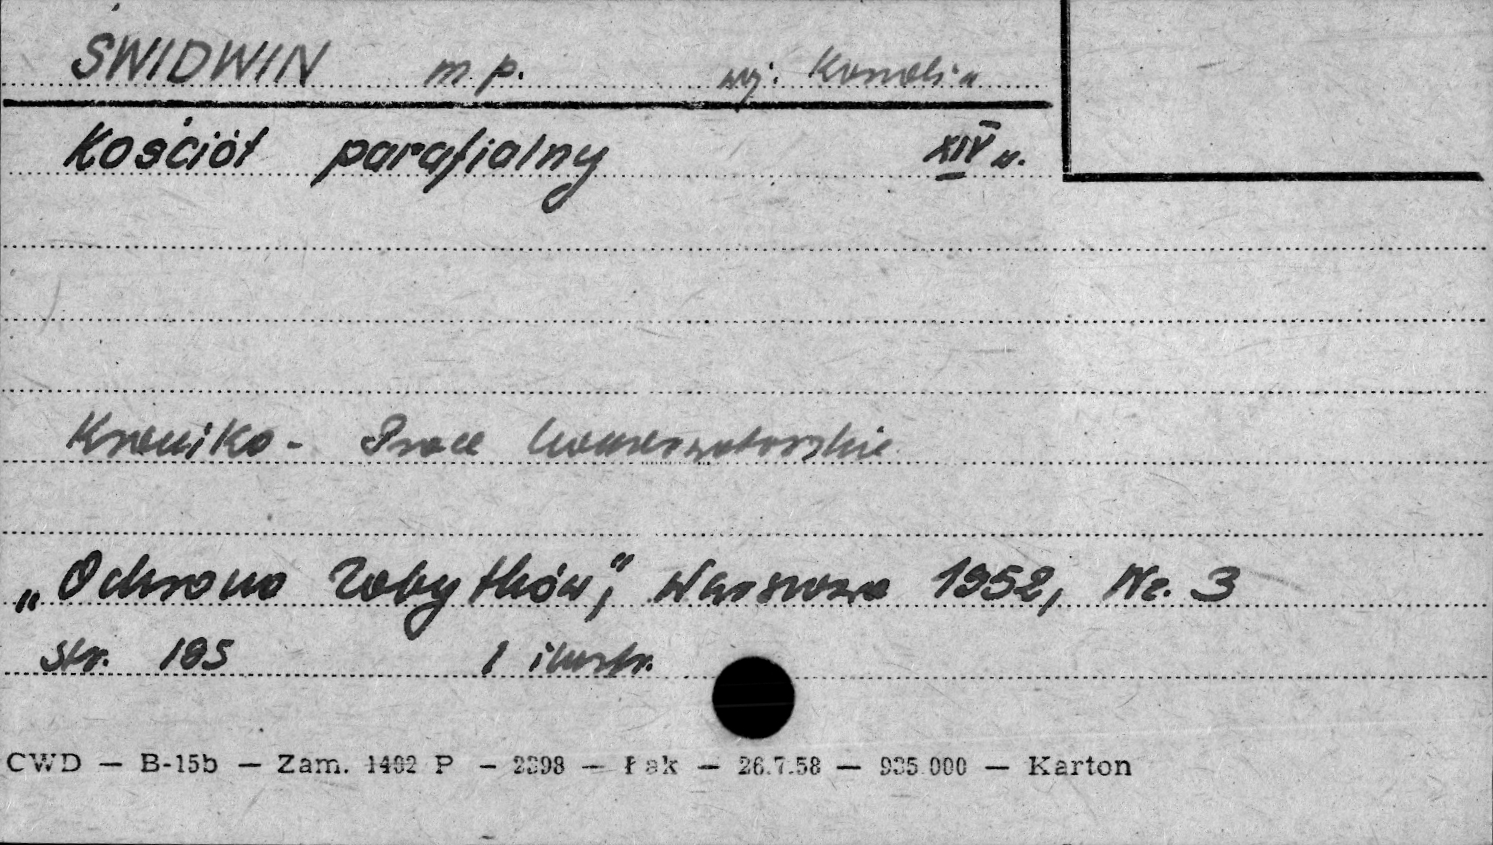 ŚWIDWIN m.p. woj. Koszalin
Kościół parafialny XIV w.
Kronika - Prace konserwatorskie
„Ochrona Zabytków”, Warszawa 1952, Nr. 3
str. 195 1 ilustr.
CWD — B-15b — Zam. 1402 P — 2398 — Pak — 26.7.58 — 935.000 — Karton